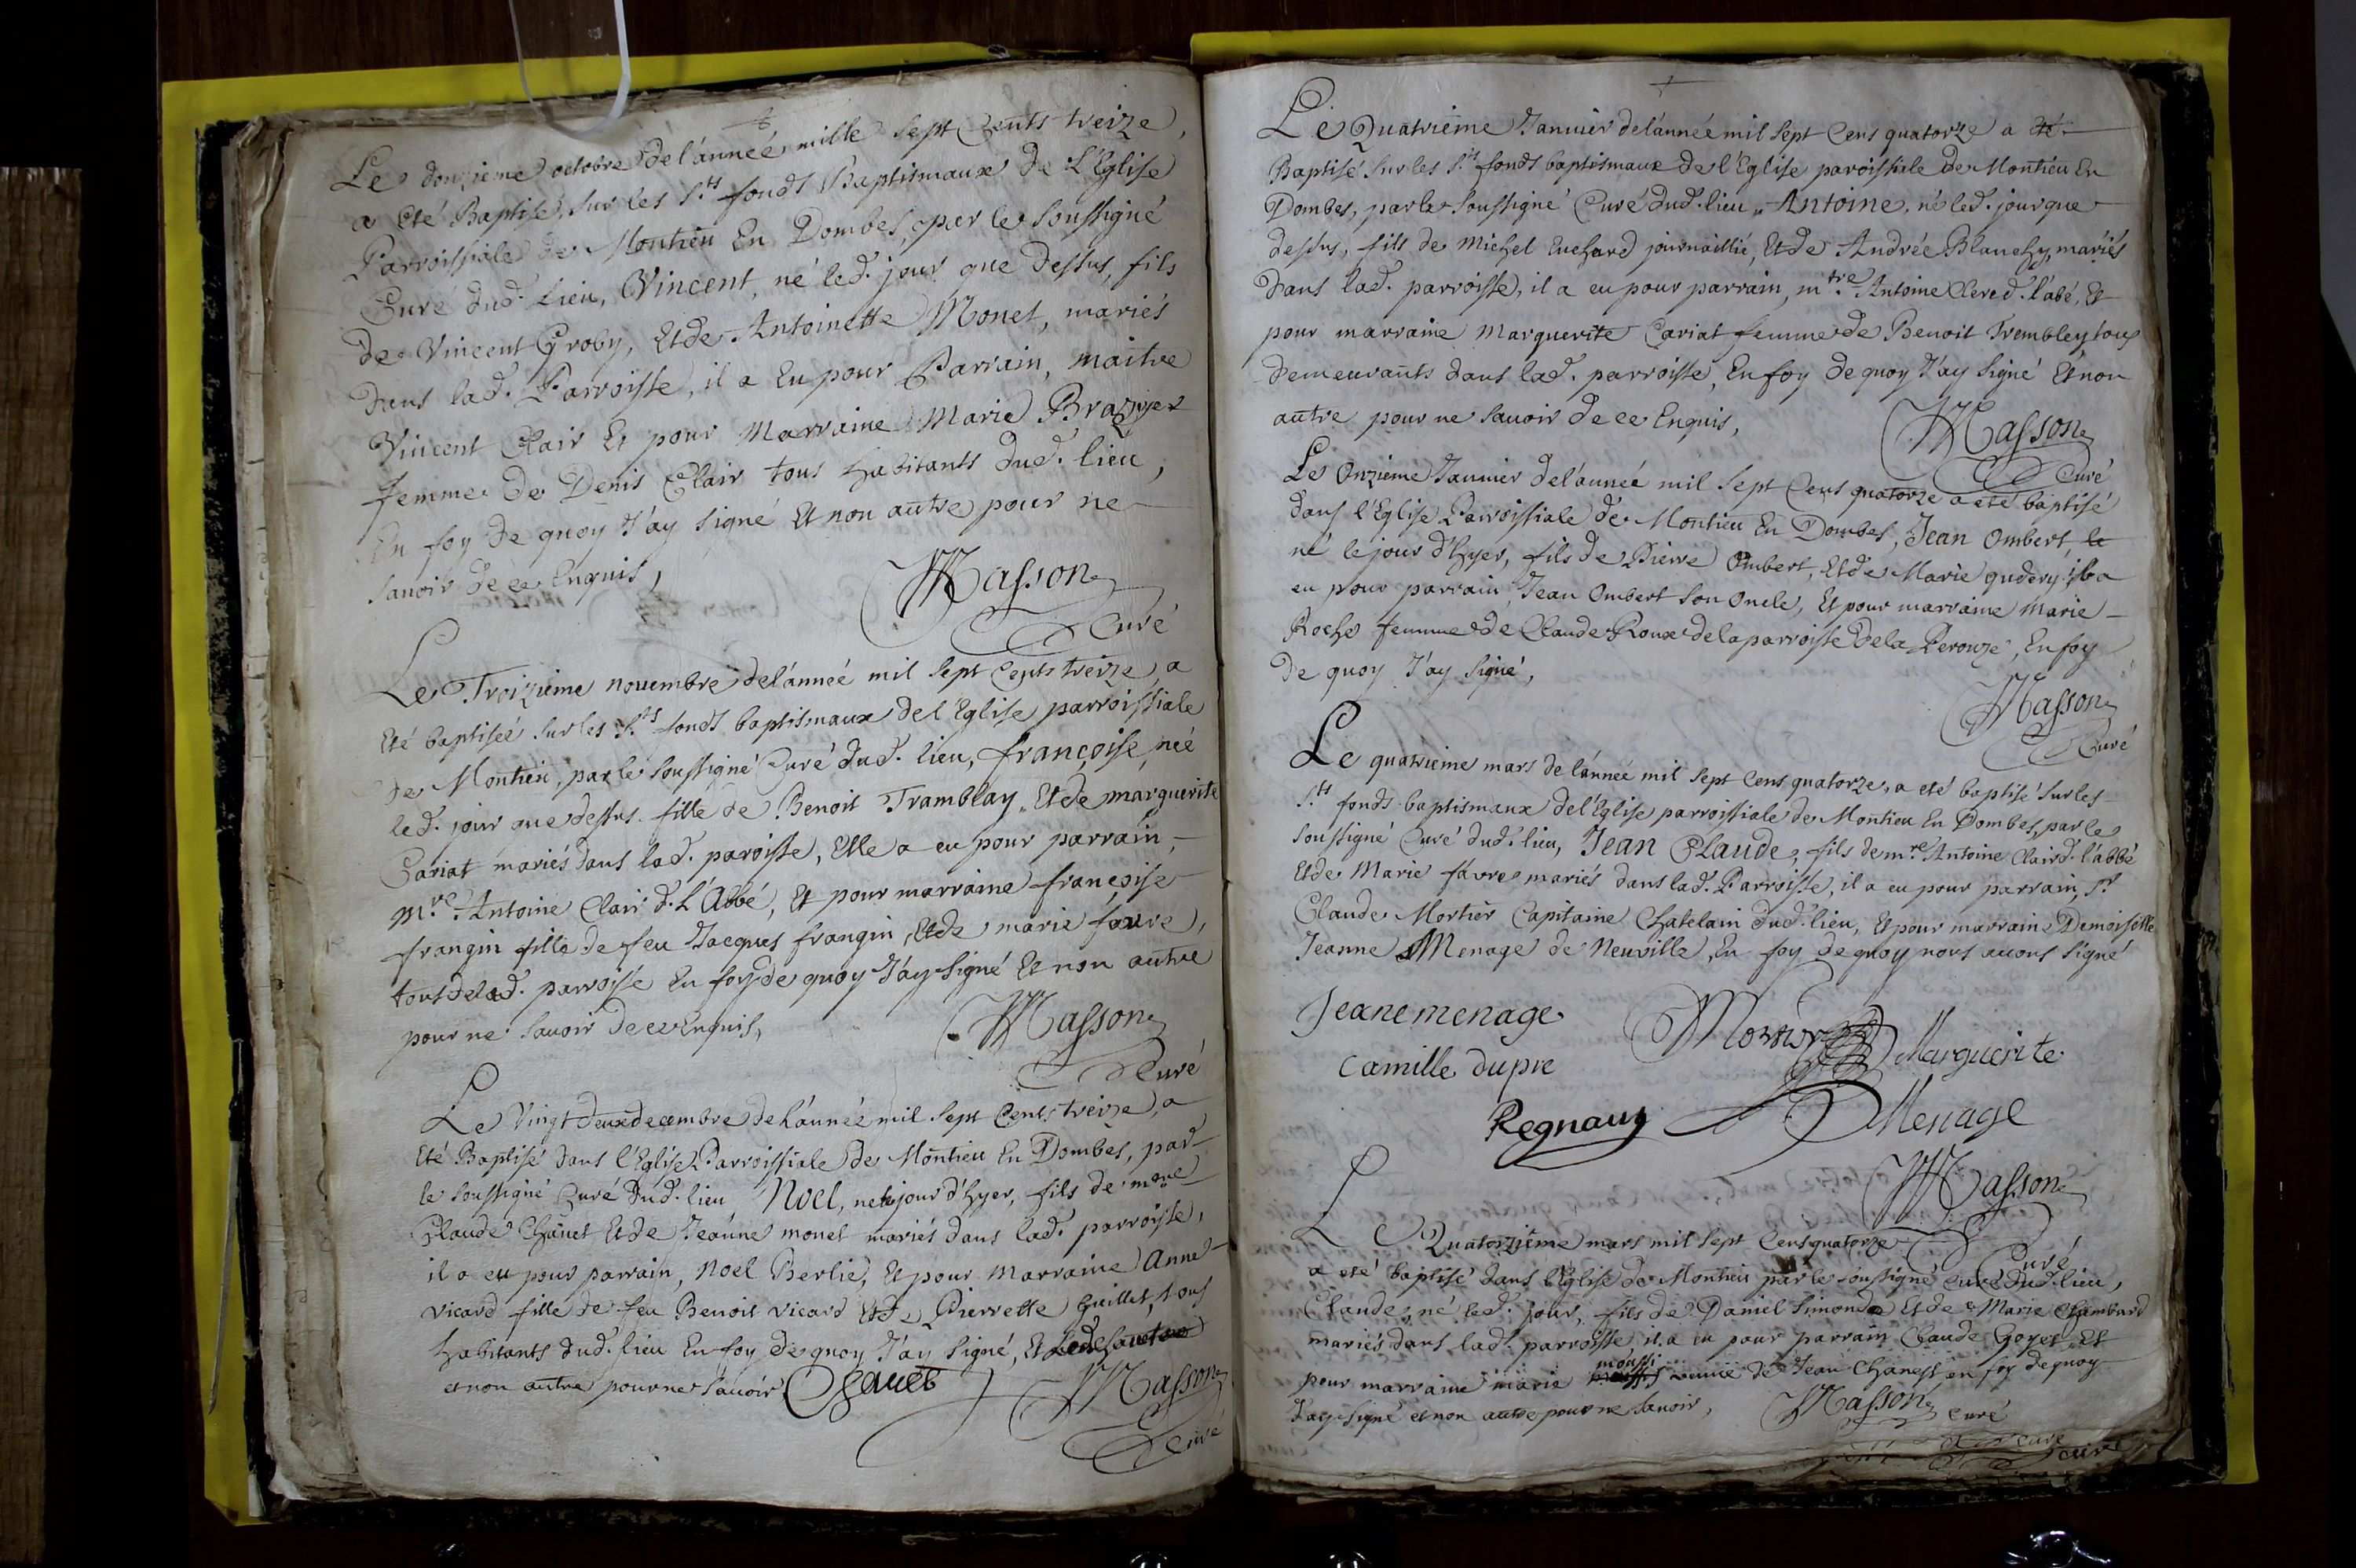 Le douzieme octobre de l'année mille sept Cents treize,
a Eté Baptisé, sur les Sts fonds Baptismaux de L'Eglise
Parroissiale de Montieu En Dombes, par le soussigné
Curé dud. Lieu, Vincent, né led. jour que dessus, fils
de Vincent Groby, Et de Antoinette Monet, mariés
dans lad. Parroisse, il a Eu pour Parrain, maitre
Vincent Clair Et pour Marraine Marie Brazyer
femme de Denis Clair tous habitants dud. lieu,
En foy de quoy J'ay signé Et non autre pour ne
savoir de ce Enquis,
Masson
Curé
Le Troizieme novembre de l'année mil sept Cents treize, a
Eté baptiseé sur les Sts fonds baptismaux de l'Eglise parroissiale
de Montieu, par le soussigné Curé dud. lieu, françoise, neé
led. jour que dessus fille de Benoit Tramblay, Et de marguerite
Cariat mariés dans lad. paroisse, Elle a eu pour parrain,
Mre Antoine Clair d. L'Abbé, Et pour marraine françoise
frangin fille de feu Jacques frangin, Et de marie favre,
tous de lad. parroisse En foy de quoy J'ay signé Et non autre
pour ne savoir de ce Enquis,
Masson
Curé
Le Vingt deux decembre de l'année mil sept Cents treize, a
Eté Baptisé dans l'Eglise Parroissiale de Montieu En Dombes, par
le soussigné Curé dud. lieu Noel, né le jour d'hyer, fils de
Claude Chanet Et de Jeanne monet mariés dans lad. parroisse,
il a eu pour parrain, Noel Berlie, Et pour marraine Anne
vicard fille de feu Benoit vicard Et de Pierrette Guillet, tous
habitants dud. lieu En foy de quoy J'ay signé, Et
et non autre pour ne savoir
Masson
Curé
Le Quatrieme Janvier de l'année mil sept Cens quatorze a eté
Baptisé sur les Sts fonds baptismaux de l'Eglise paroissiale de Montieu En
Dombes, par le soussigné Curé dud. lieu, Antoine, né led. jour que
dessus, fils de Michel Euchard journaillié, Et de Andrée Blanchy, mariés
dans lad. parroisse, il a eu pour parrain, mtre Antoine Clere d. l'abé, Et
pour marraine Marguerite Cariat femme de Benoit Trembley tous
demeurants dans lad. parroisse, En foy de quoy J'ay signé Et non
autre pour ne savoir de ce Enquis,
Masson
Curé
Le Onzieme Janvier de l'anneé mil sept Cens quatorze a eté baptisé
dans l'Eglise Parroissiale de Montieu En Dombes, Jean Ombert, le
né le jour d'hyer, fils de Pierre Ombert, Et de Marie gudery il a
eu pour parrain Jean Ombert son Oncle, Et pour marraine Marie
Roche femme de Claude Roux de la parroisse de la Perouze, En foy
de quoy J'ay signé,
Masson
Curé
Le quatrieme mars de l'anneé mil sept Cens quatorze, a eté baptisé sur les
Sts fonds baptismaux de l'Eglise parroissiale de Montieu En Dombes, par le
soussigné Curé dud. lieu, Jean Claude, fils de mre Antoine Clair d. l'abbé
Et de Marie favre mariés dans lad. Parroisse, il a eu pour parrain, Sr
Claude Mortier Capitaine Chatelain dud. lieu, Et pour marraine Demoiselle
Jeanne Menage de Neuville, En foy de quoy nous avons signé
Jeane menage
Mortier
camille dupre
Marguerite
Regnaux
Menage
Masson
Curé
Le Quatorzieme mars mil sept Cens quatorze
a eté baptisé dans l'Eglise de Montieu par le soussigné curé dud. lieu,
Claude, né led. jour, fils de Daniel Simonde Et de Marie Chambard
mariés dans lad. parroisse, il a eu pour parrain Claude Goyet Et
moussi
pour marraine marie veuve de Jean Chanest en foy de quoy
J'ay signé et non autre pour ne savoir,
Masson curé